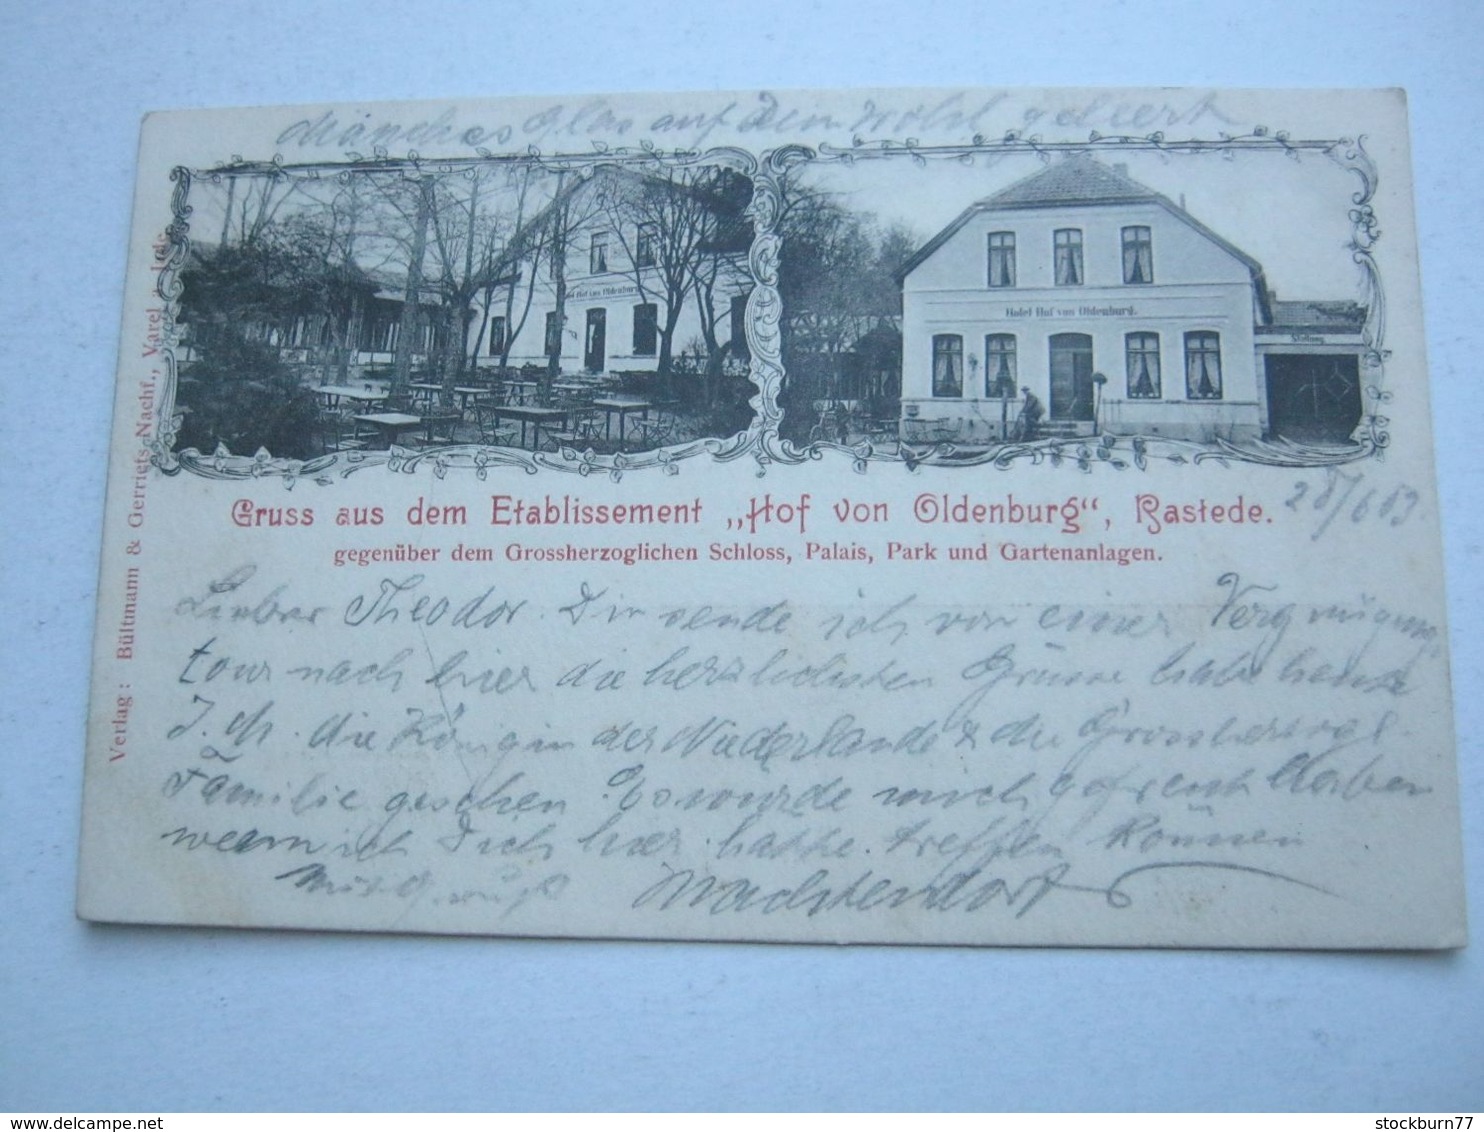 Manches Glas auf Dein Wohl geleert
Hotel Hof von Oldenburg
Hotel Hof von Oldenburg.
Stallung
Gruss aus dem Etablissement „Hof von Oldenburg“, Rastede.
28/6 03
gegenüber dem Grossherzoglichen Schloss, Palais, Park und Gartenanlagen.
Lieber Theodor. Dir sende ich von einer Vergnügungs
tour nach hier die herzlichsten Grüsse habe heute
I. M. die Königin der Niederlande & die Grossherzogl.
Familie gesehen. Es wurde mich gefreut haben
wenn ich Dich hier hätte treffen können
Mit Gruß Wachtendorf
Verlag: Bültmann & Gerriets Nachf., Varel
delcampe.net
stockburn77